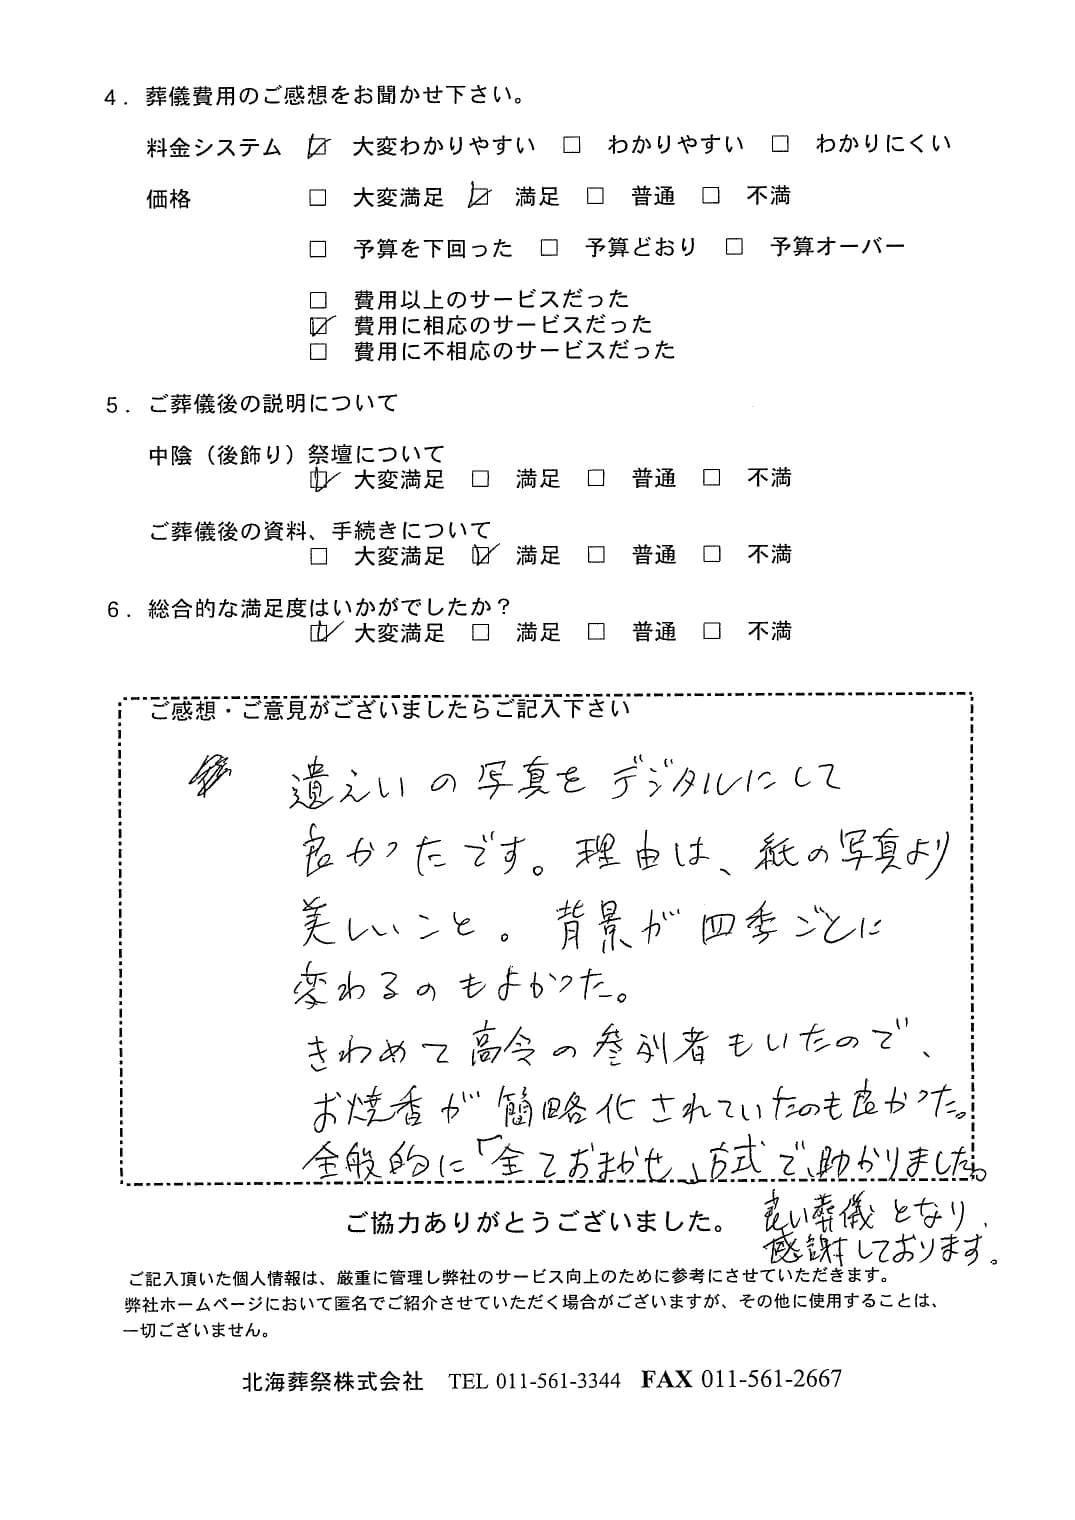 4．葬儀費用のご感想をお聞かせ下さい。
料金システム ☑ 大変わかりやすい □ わかりやすい □ わかりにくい
価格 □ 大変満足 ☑ 満足 □ 普通 □ 不満
□ 予算を下回った □ 予算どおり □ 予算オーバー
□ 費用以上のサービスだった
☑ 費用に相応のサービスだった
□ 費用に不相応のサービスだった
5．ご葬儀後の説明について
中陰（後飾り）祭壇について
☑ 大変満足 □ 満足 □ 普通 □ 不満
ご葬儀後の資料、手続きについて
□ 大変満足 ☑ 満足 □ 普通 □ 不満
6．総合的な満足度はいかがでしたか？
☑ 大変満足 □ 満足 □ 普通 □ 不満
ご感想・ご意見がございましたらご記入下さい
遺えいの写真をデジタルにして
良かったです。理由は、紙の写真より
美しいこと。背景が四季ごとに
変わるのもよかった。
きわめて高令の参列者もいたので、
お焼香が簡略化されていたのも良かった。
全般的に「全ておまかせ」方式で、助かりました。
良い葬儀となり、
感謝しております。
ご協力ありがとうございました。
ご記入頂いた個人情報は、厳重に管理し弊社のサービス向上のために参考にさせていただきます。
弊社ホームページにおいて匿名でご紹介させていただく場合がございますが、その他に使用することは、
一切ございません。
北海葬祭株式会社 TEL 011-561-3344 FAX 011-561-2667